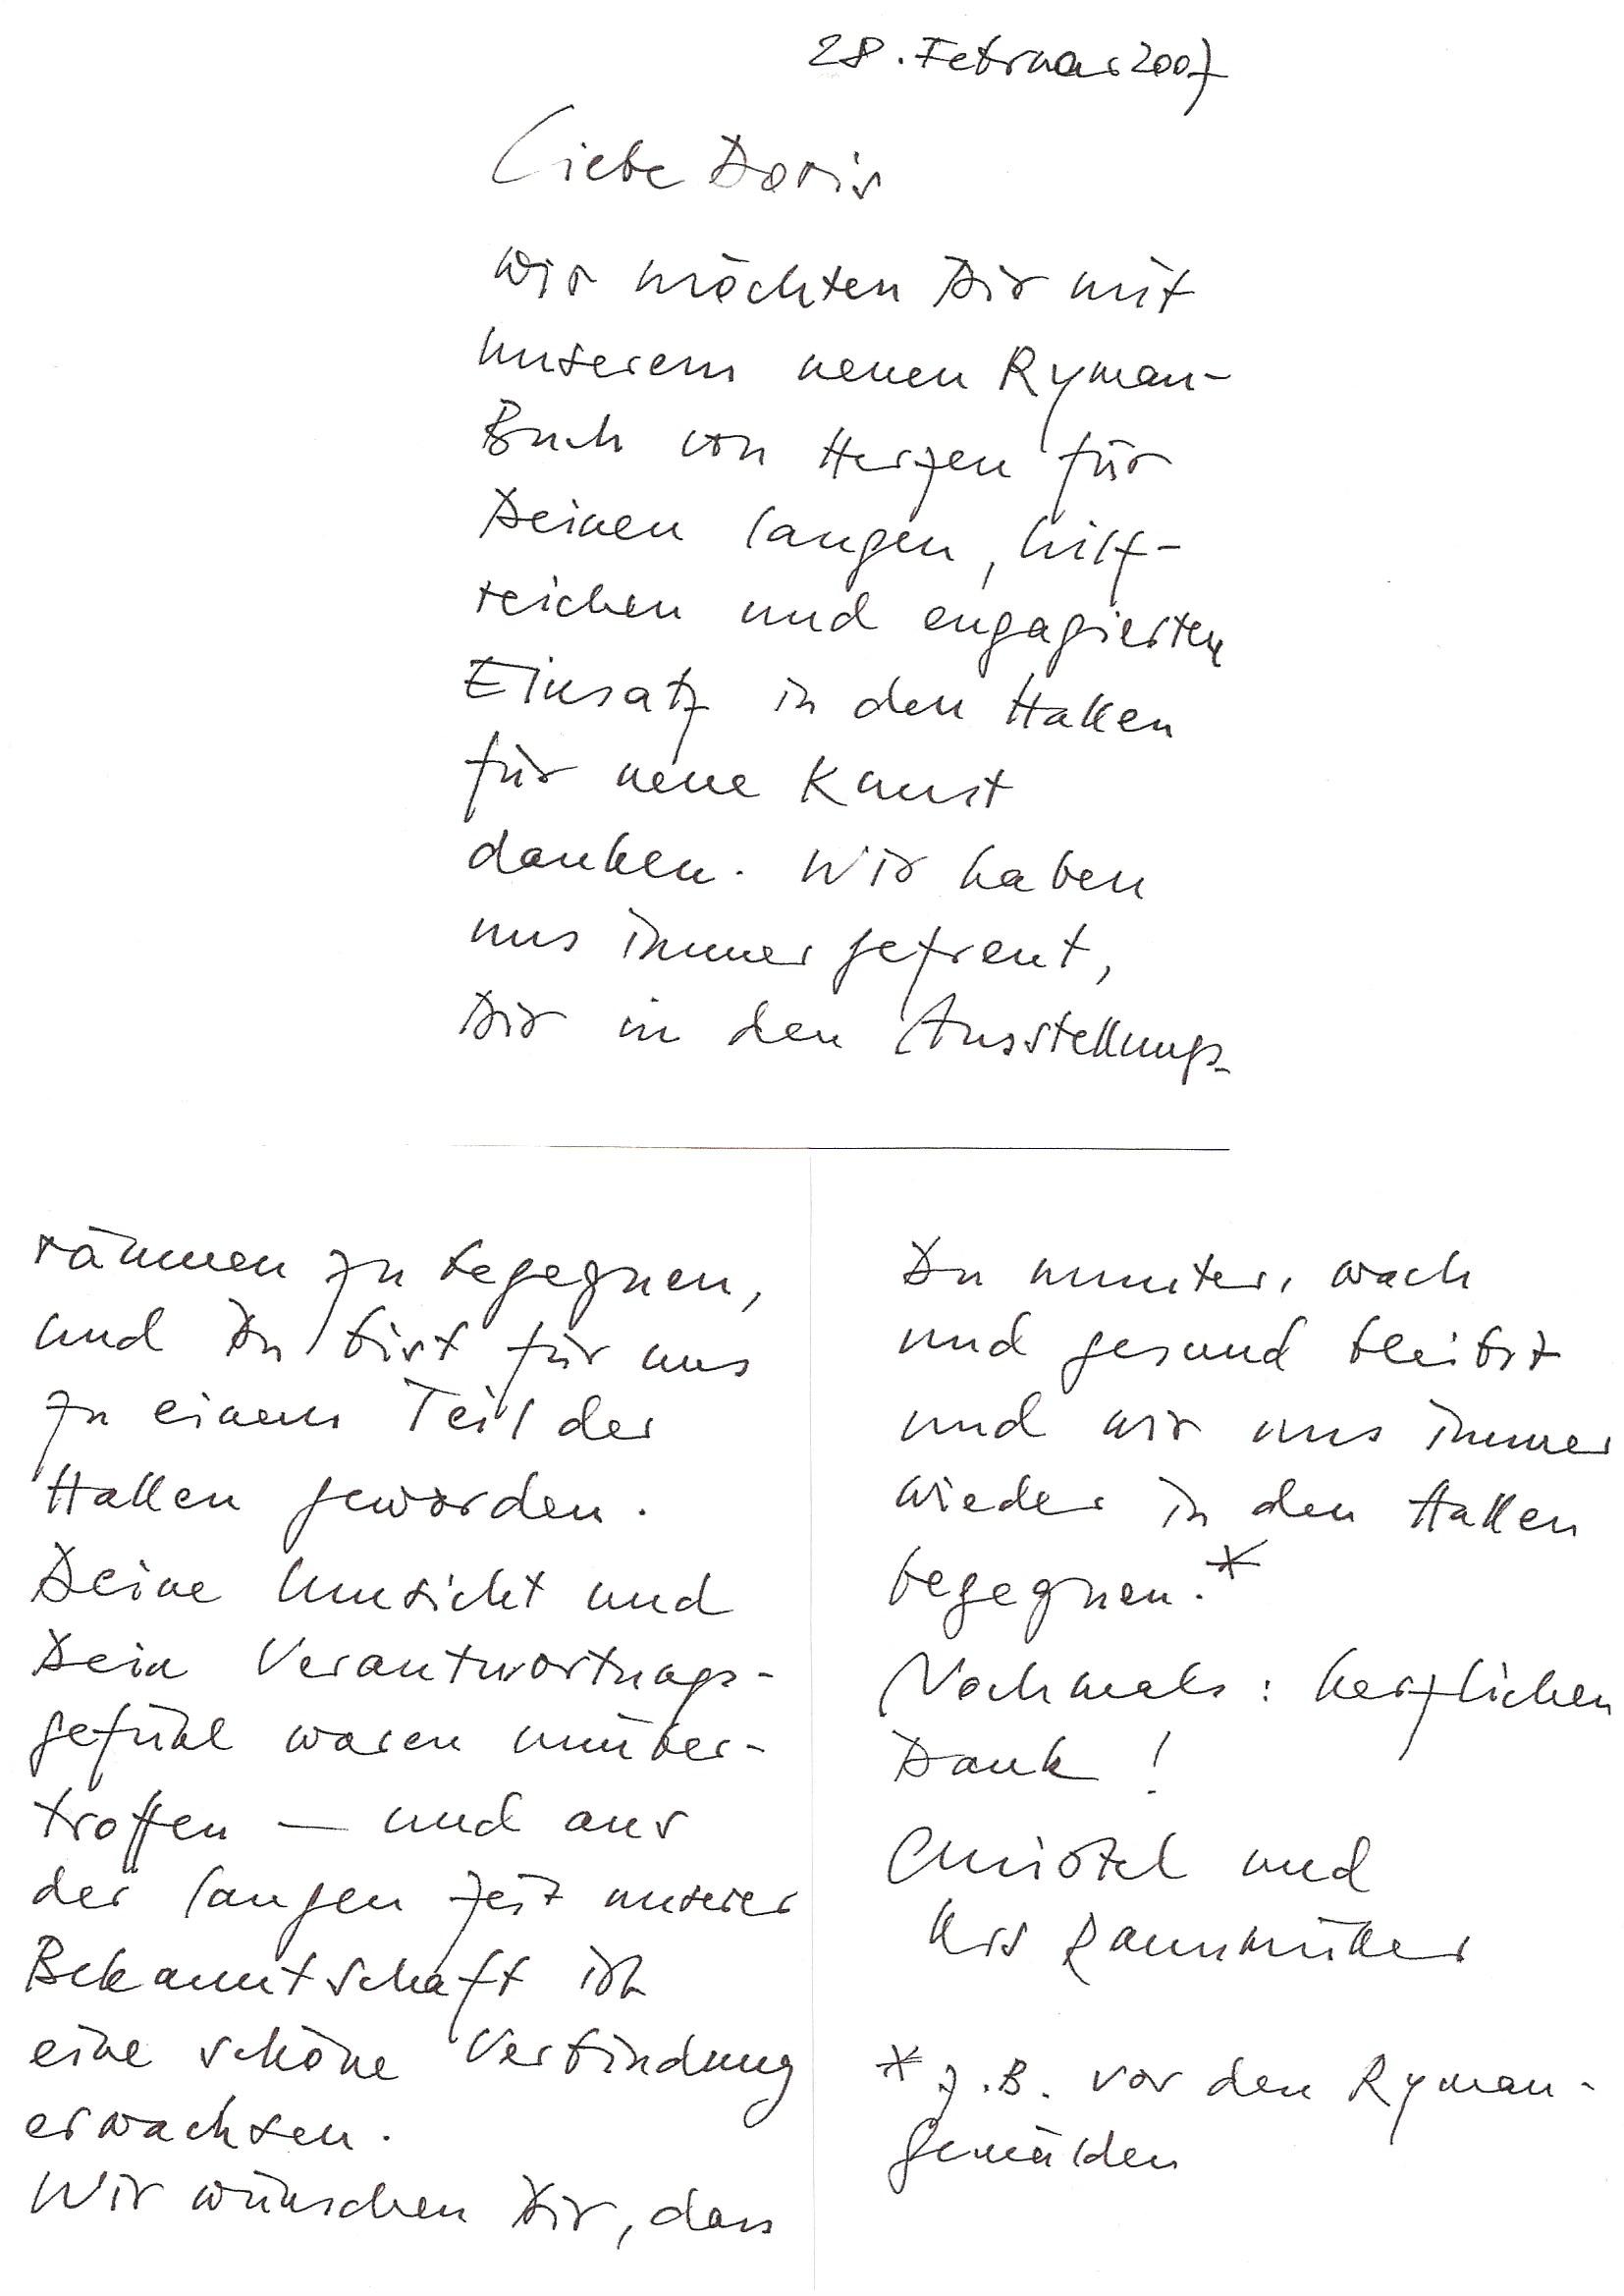 28. Februar 2007
Liebe Doris
Wir möchten Dir mit
unserem neuen Ryman-
Buch von Herzen für
Deinen langen, hilf-
reichen und engagierten
Einsatz in den Hallen
für neue Kunst
danken. Wir haben
uns immer gefreut,
Dir in den Ausstellungs-
räumen zu begegnen,
und Du bist für uns
zu einem Teil der
Hallen geworden.
Deine Umsicht und
Dein Verantwortungs-
gefühl waren unüber-
troffen — und aus
der langen Zeit unserer
Bekanntschaft ist
eine schöne Verbindung
erwachsen.
Wir wünschen Dir, dass
Du munter, wach
und gesund bleibst
und wir uns immer
wieder in den Hallen
begegnen.*
Nochmals: herzlichen
Dank!
Christel und
Urs Raussmüller
* z.B. vor den Ryman-
Gemälden